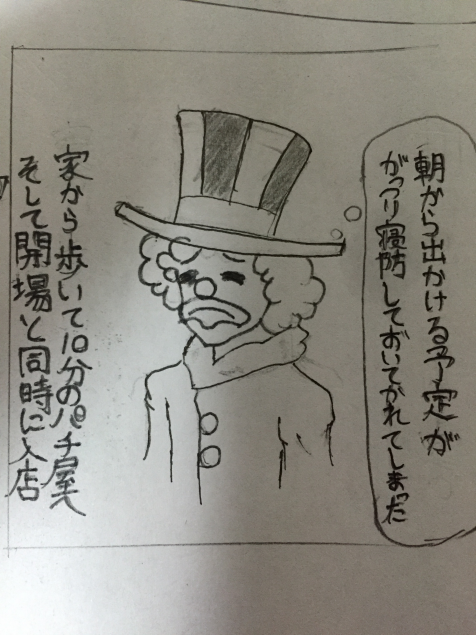 朝から出かける予定が
がっつり寝防しておいてかれてしまった
家から歩いて10分のパチ屋へ
そして開場と同時に入店